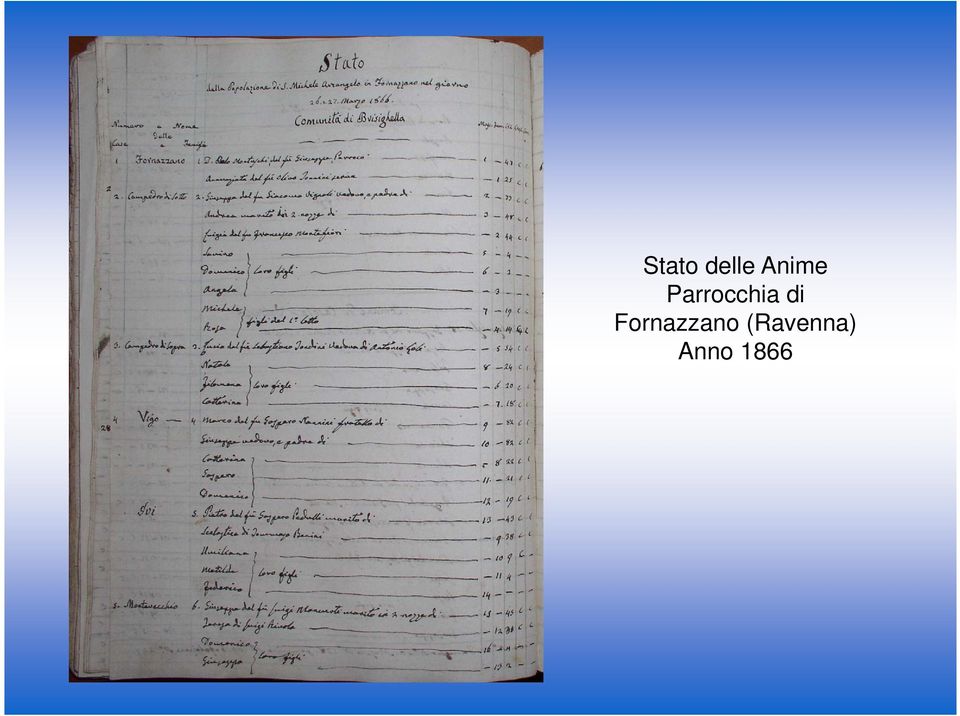 Stato
della Popolazione di S. Michele Arcangelo in Fornazzano nel giorno
26. e 27. Marzo 1866.
Numero e Nome Comunità di Brisighella
delle
Case e Famiglie
1 Fornazzano 1 D. Paolo del fu Giuseppe, Parroco 1 - 47 C
Annunziata del fu Olivo serva - 1 25 C C
2. Campedro di Sotto 2. Giuseppe del fu Giacomo Vignoli vedovo, e padre di 2 - 77 C C
Andrea marito in 2. nozze di 3 - 48 C C
Luigia del fu Francesco Montefiori - 2 44 C C
Savino 5 - 4
Domenico loro figli 6 - 2
Angela - 3
Michele 7 - 19 C C
Rosa figli del 1º letto - 4. 14
3. Campedro di Sopra 3. Lucia del fu Sebastiano vedova di Antonio - 5 54 C C
Natale 8 - 24 C C
Filomena loro figli - 6 20 C C
Catterina - 7. 18 C C
4 Vigo 4. Marco del fu Gaspare Nannini fratello di 9 - 82 C C
28
Giuseppe vedovo, e padre di 10 - 82 C C
Catterina 8 22 C C
Gaspero 11 - 21 C C
Domenico 12 - 19 C C
Ivi 5. Pietro del fu Gaspero marito di 13 - 43 C C
Scolastica di Tommaso Benini - 9. 38 C C
Emiliana - 10 9 C
Matilde loro figli - 11 4
Federico 14 -
5. Montevecchio 6. Giuseppe del fu Luigi marito in 2 nozze di 15 - 45 C C
Teresa di Luigi - 12 38 C C
Domenico 16 - 11 C
Giuseppa loro figli - 13 2
Stato delle Anime
Parrocchia di
Fornazzano (Ravenna)
Anno 1866